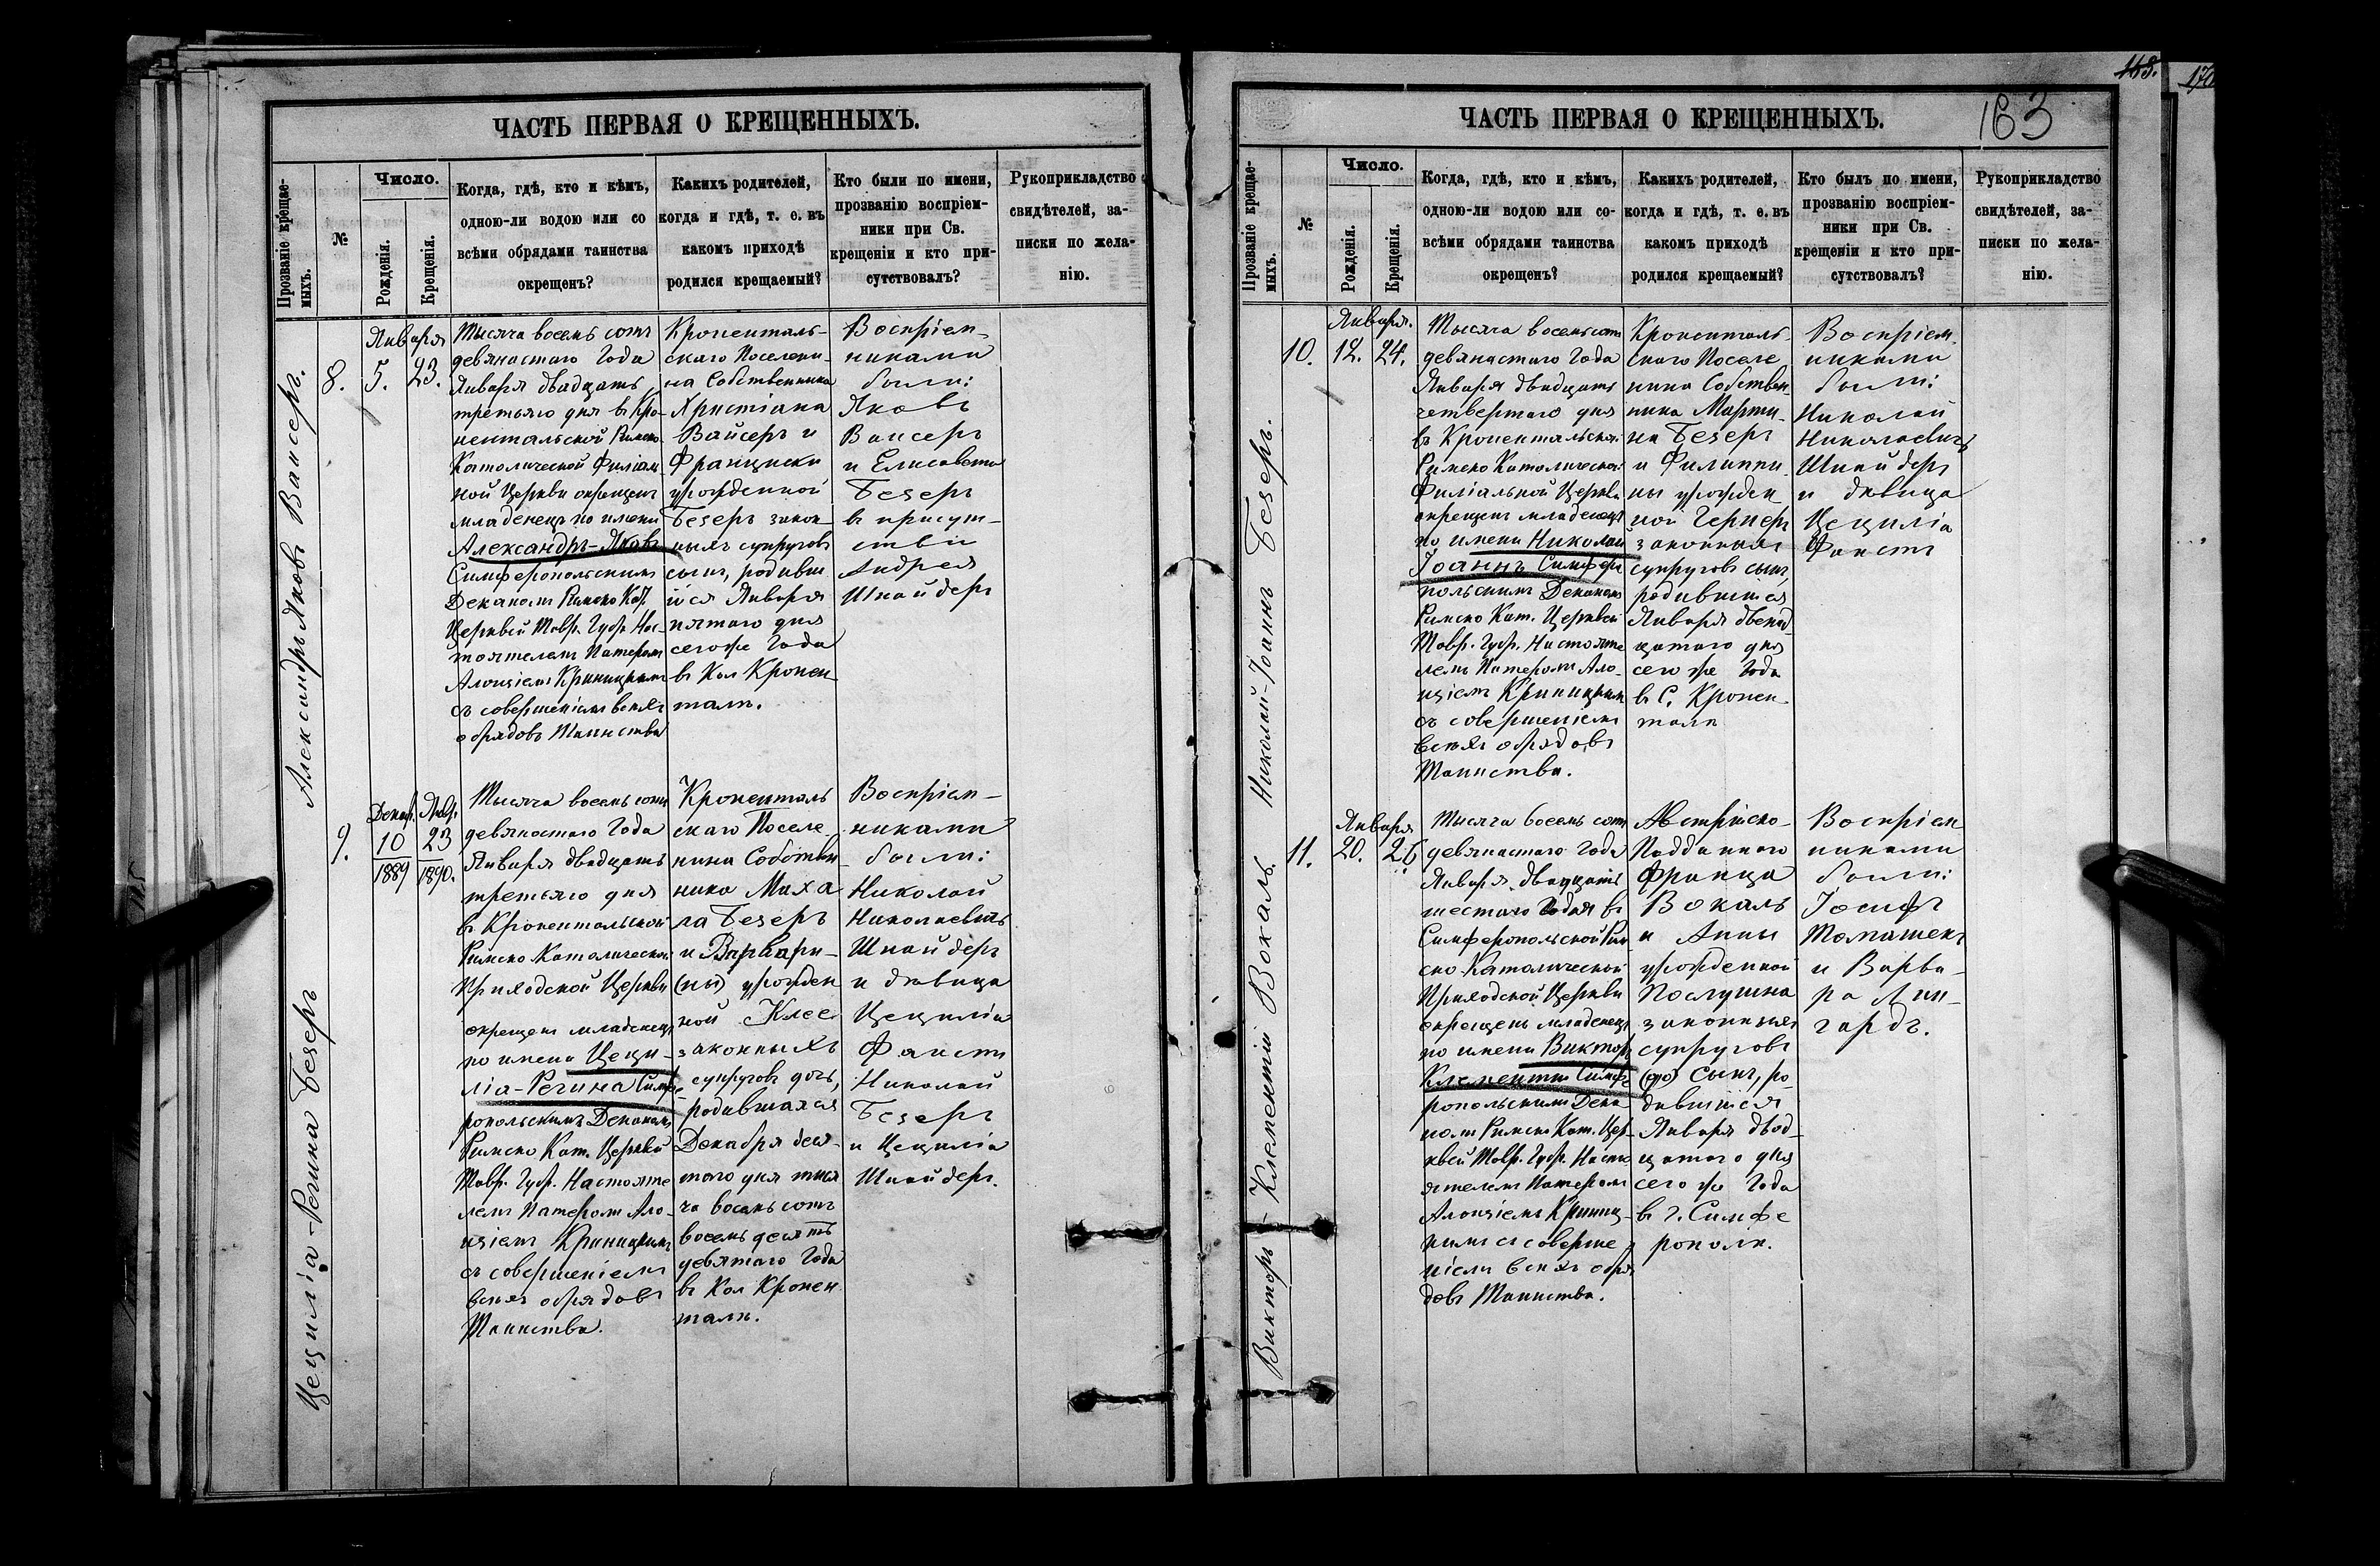 ЧАСТЬ ПЕРВАЯ О КРЕЩЕННЫХЪ.
Прозваніе крещае-
мыхъ.
№
Число.
Рожденія.
Крещенія.
Когда, гдѣ, кто и кѣмъ,
одною-ли водою или со
всѣми обрядами таинства
окрещенъ?
Какихъ родителей,
когда и гдѣ, т. е. въ
какомъ приходѣ
родился крещаемый?
Кто были по имени,
прозванію воспріем-
ники при Св.
крещеніи и кто при-
сутствовалъ?
Рукоприкладство
свидѣтелей, за-
писки по жела-
нію.
Александръ Яковъ Вайсеръ.
8.
Января
5. 23.
Тысяча восемь сотъ
девяностаго Года
Января двадцать
третьяго дня въ Кро-
нентальской Римско
Католической Филіаль
ной Церкви окрещенъ
младенецъ по имени
Александръ-Яковъ
Симферопольскимъ
Деканомъ Римско Кат.
Церквей Тавр. Губ. Нас-
тоятелемъ Патеромъ
Алоизіемъ Криницкимъ
съ совершеніемъ всѣхъ
обрядовъ Таинства
Кроненталь-
скаго Поселени-
на Собственника
Христіана
Вайсеръ и
Франциски
урожденной
Безеръ закон-
ныхъ супруговъ
сынъ, родивш
ійся Января
пятаго дня
сегоже Года
въ Кол Кронен-
таль.
Воспріем-
никами
были:
Яковъ
Вайсеръ
и Елисавета
Безеръ
въ присут-
ствіи
Андрея
Шнайдеръ
Цецилія-Регина Безеръ
9.
Декаб. Янвр.
10 23
1889 1890.
Тысяча восемь сотъ
девяностаго Года
Января двадцать
третьяго дня
въ Кронентальской
Римско Католической
Приходской Церкви
окрещенъ младенецъ
по имени Цеци-
лія-Регина Симфе-
ропольскимъ Деканомъ
Римско Кат. Церквей
Тавр. Губ. Настояте
лемъ Патеромъ Ало-
изіемъ Криницкимъ
съ совершеніемъ
всѣхъ обрядовъ
Таинства.
Кроненталь
скаго Поселе-
нина Собствен
ника Миха
ла Безеръ
и Варвары-
(ны) урожден
ной Клее
законныхъ
супруговъ дочь,
родившаяся
Декабря деся-
таго дня тыся
ча восемь сотъ
восемьдесятъ
девятаго Года
въ Кол Кронен
таль.
Воспріем-
никами
были:
Николай
Николаевичъ
Шнайдеръ
и дѣвица
Цецилія
Фаистъ
Николай
Безеръ
и Цецилія
Шнайдеръ.
168.
170
163
ЧАСТЬ ПЕРВАЯ О КРЕЩЕННЫХЪ.
Прозваніе крещае-
мыхъ.
№
Число.
Рожденія.
Крещенія.
Когда, гдѣ, кто и кѣмъ,
одною-ли водою или со-
всѣми обрядами таинства
окрещенъ?
Какихъ родителей,
когда и гдѣ, т. е. въ
какомъ приходѣ
родился крещаемый?
Кто былъ по имени,
прозванію воспріем-
ники при Св.
крещеніи и кто при-
сутствовалъ?
Рукоприкладство
свидѣтелей, за-
писки по жела-
нію.
Николай-Іоаннъ Безеръ.
10.
Января.
12. 24.
Тысяча восемь сотъ
девяностаго Года
Января двадцать
четвертаго дня
въ Кронентальской
Римско Католической
Филіальной Церкви
окрещенъ младенецъ
по имени Николай
Іоаннъ Симферо
польскимъ Деканомъ
Римско Кат. Церквей
Тавр. Губ. Настояте
лемъ Патеромъ Ало-
изіемъ Криницкимъ
съ совершеніемъ
всѣхъ обрядовъ
Таинства.
Кроненталь-
скаго Поселе
нина Собствен
ника Марти-
на Безеръ
и Филиппи
ны урожден
ной Гернеръ
законныхъ
супруговъ сынъ,
родившійся
Января двенад
цатаго дня
сего же Года
въ С. Кронен-
таль
Воспріем-
никами
были:
Николай
Николаевичъ
Шнайдеръ
и дѣвица
Цецилія
Фаистъ
Викторъ-Клементій Вокаль.
11.
Января
20. 26
Тысяча восемь сотъ
девяностаго Года
Января двадцать
шестаго дня въ
Симферопольской Рим
ско Католической
Приходской Церкви
окрещенъ младенецъ
по имени Викторъ
Клементій Симфе
ропольскимъ Дека
номъ Римско Кат. Цер-
квей Тавр. Губ. Насто
ятелемъ Патеромъ
Алоизіемъ Криниц-
кимъ съ соверше
ніемъ всѣхъ обря
довъ Таинства.
Австрійско-
Подданнаго
Франца
Вокаль
и Анны
урожденной
Послушна
законныхъ
супруговъ
сынъ, ро-
дившійся
Января двад-
цатаго дня
сего же Года
въ г. Симфе
рополи.
Воспріем
никами
были:
Іосифъ
Томашекъ
и Варва-
ра Лин-
гардъ.